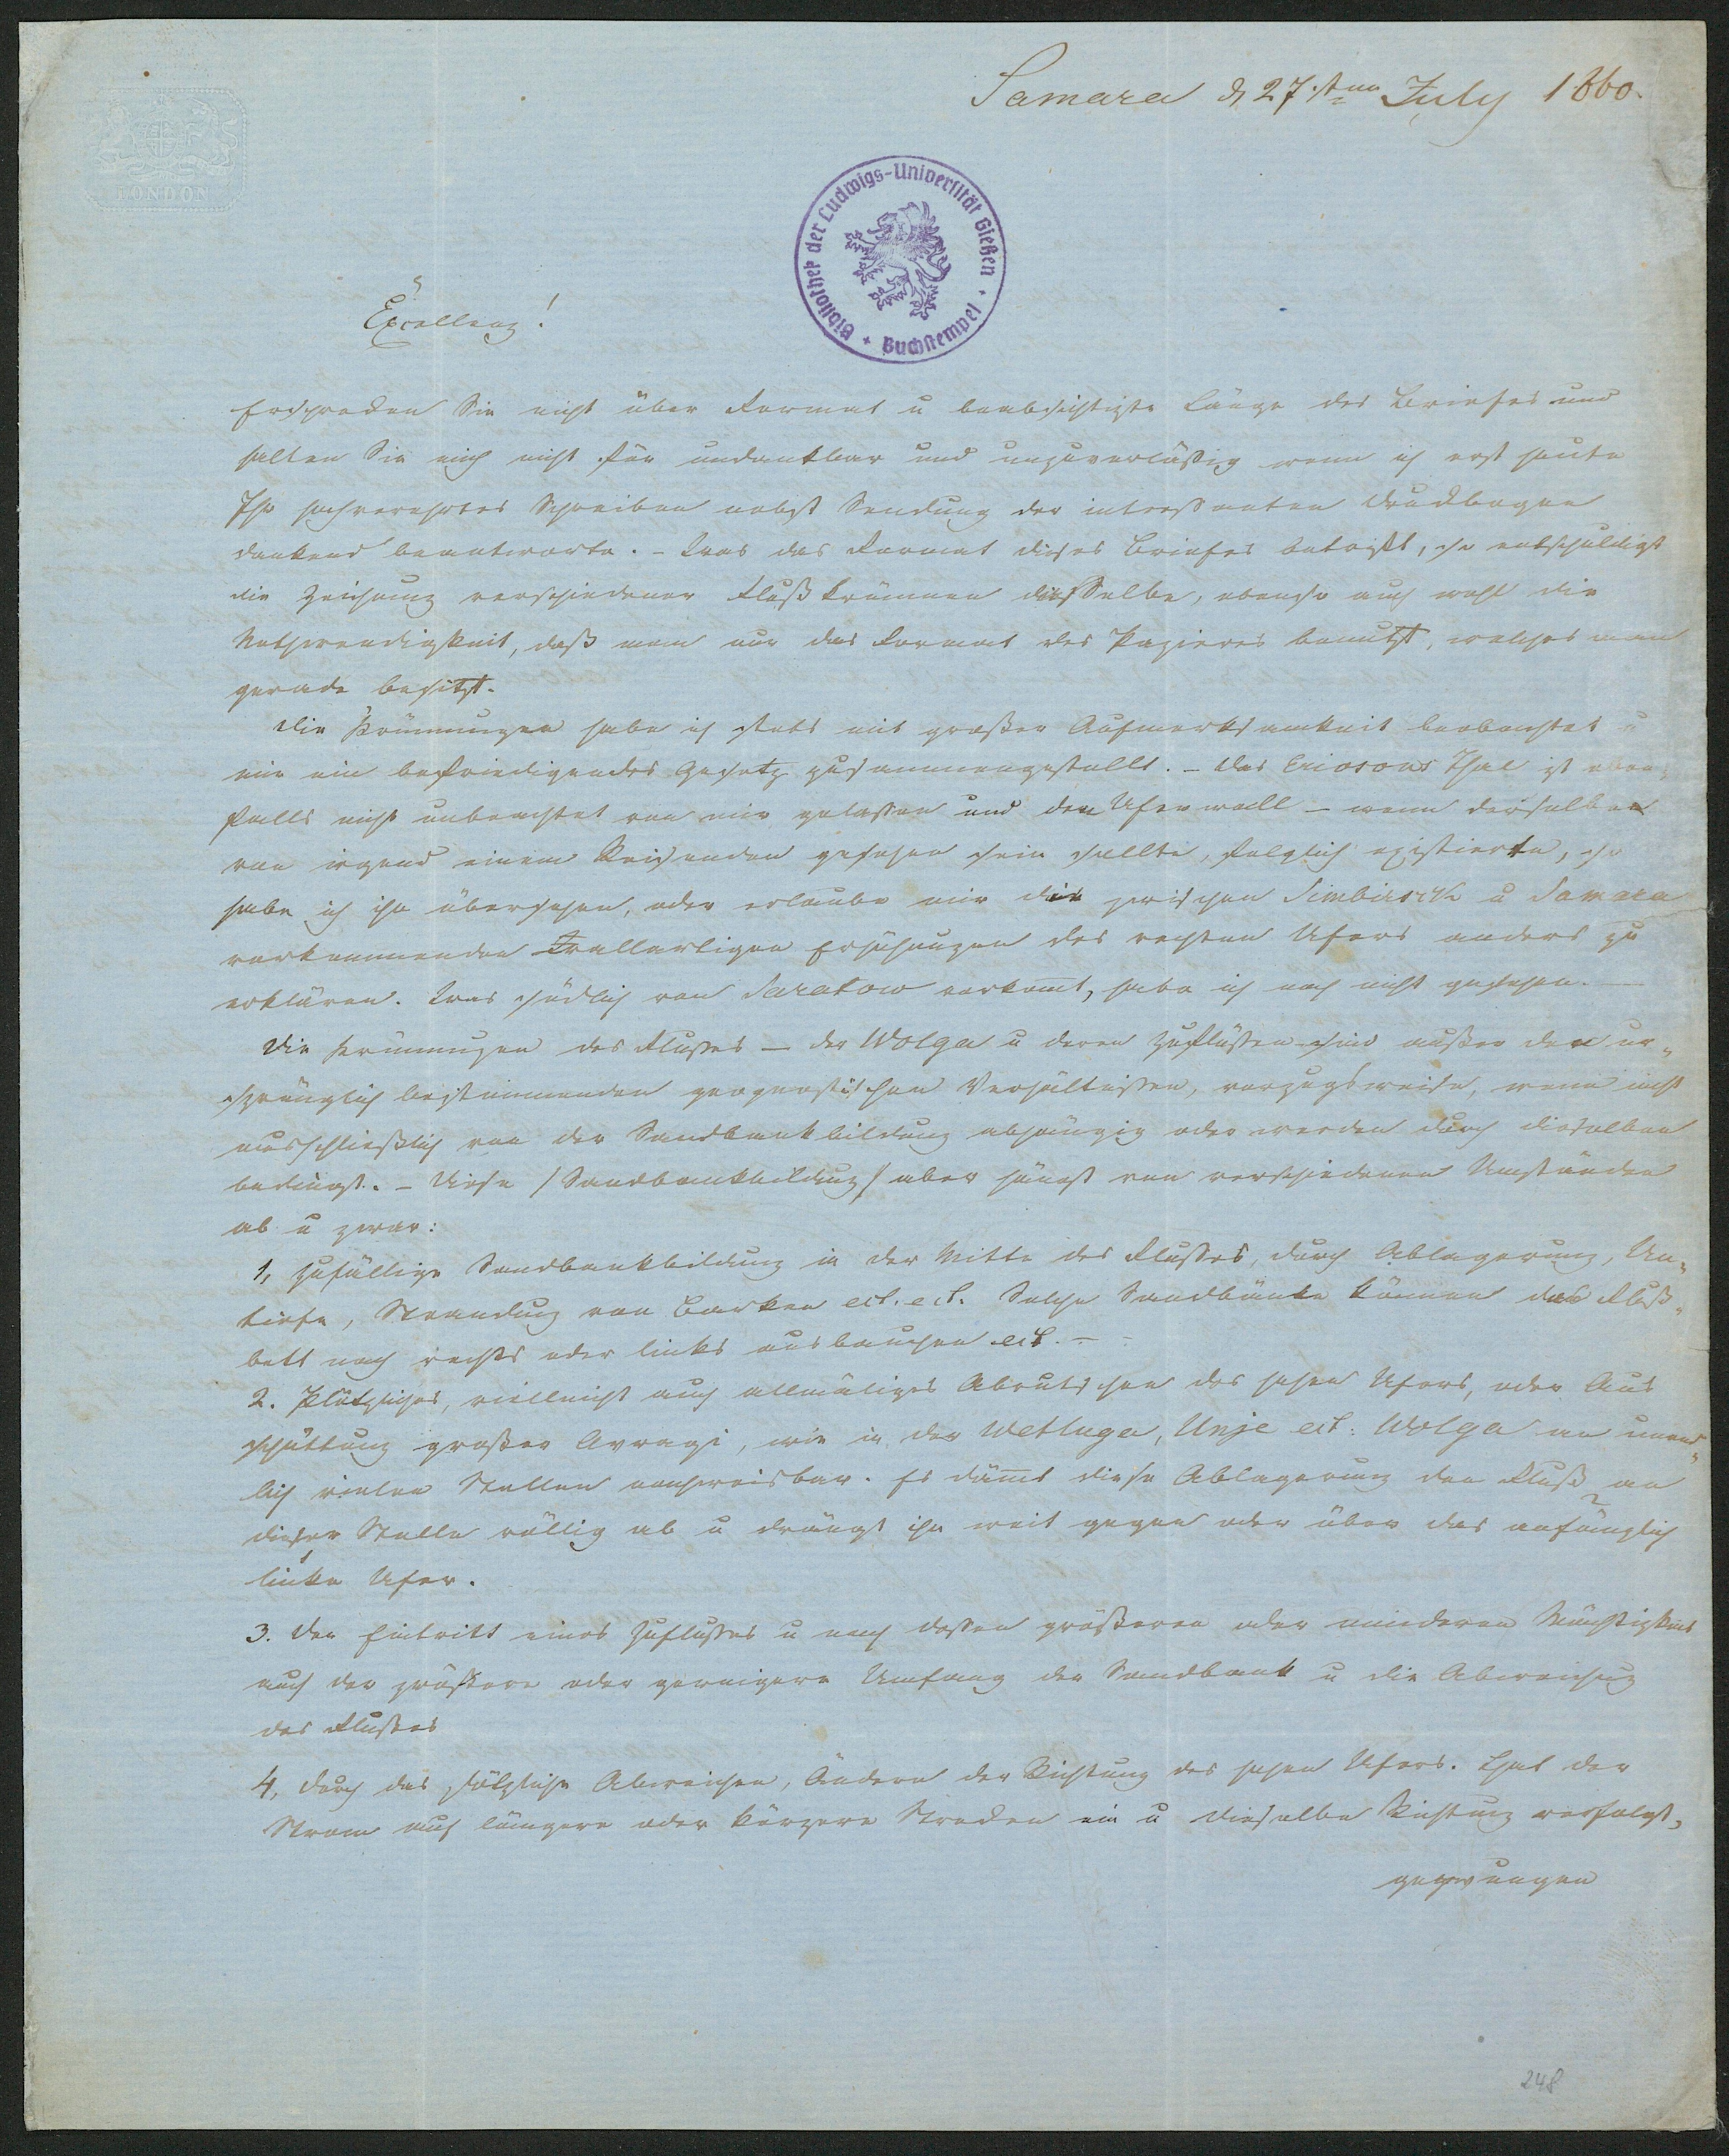 Samara d 27sten July 1860.
LONDON
Bibliothek der Ludwigs-Universität Gießen
Buchstempel
Excellenz!
Erschrecken Sie nicht über Format u beabsichtigte Länge des Briefes und
halten Sie mich nicht für undankbar und unzuverläßig wenn ich erst heute
Ihr hochverehrtes Schreiben nebst Sendung der interessanten Druckbogen
dankend beantworte. – Was das Format dieses Briefes betrifft, so entschuldigt
die Zeichnung verschiedener Flußkrümmen dasselbe, ebenso auch wohl die
Nothwendigkeit, daß man nur das Format des Papieres benutzt, welches man
gerade besitzt.
Die Krümmungen habe ich stets mit großer Aufmerksamkeit beobachtet u
mir ein befriedigendes Gesetz zusammengestellt. – Das Thal ist eben¬
falls nicht unbeachtet von mir gelassen und den Uferwall – wenn derselbe
von irgend einem Reisenden gesehen sein sollte, folglich existierte, so
habe ich ihn übersehen, oder erlaube mir die zwischen Simbirsk u Samara
vorkommenden wallartigen Erhöhungen des rechten Ufers anders zu
erklären. Was südlich von Saratow vorkomt, habe ich noch nicht gesehen. —
Die Krümmungen des Flusses – der Wolga u deren Zuflüssen sind außer den ur¬
sprünglich bestimmenden geognostischen Verhältnissen, vorzugsweise, wenn nicht
ausschließlich von der Sandbankbildung abhängig oder werden durch dieselben
bedingt. – Diese /Sandbankbildung/ aber hängt von verschiedenen Umständen
ab u zwar:
1, zufällige Sandbankbildung in der Mitte des Flusses, durch Ablagerung, Un¬
tiefe, Strandung von Barken ect. ect. Solche Sandbänke können das Fluß¬
bett nach rechts oder links ausbauchen ect. –
2. Plötzliches, vielleicht auch allmäliges Abrutschen des hohen Ufers, oder Aus
schüttung großer Awragi, wie in der Wetluga, Unje ect: Wolga an unend¬
lich vielen Stellen nachweisbar. Es dämt diese Ablagerung den Fluß an
dieser Stelle völlig ab u drängt ihn weit gegen oder über das anfänglich
linke Ufer.
3. Der Eintritt eines Zuflusses u nach dessen größeren oder minderen Mächtigkeit
auch der größere oder geringere Umfang der Sandbank u die Abweichung
des Flusses
4, durch das plötzliche Abweichen, Ändern der Richtung des hohen Ufers. Hat der
Strom auf längere oder kürzere Strecken ein u dieselbe Richtung verfolgt,
gezwungen
248